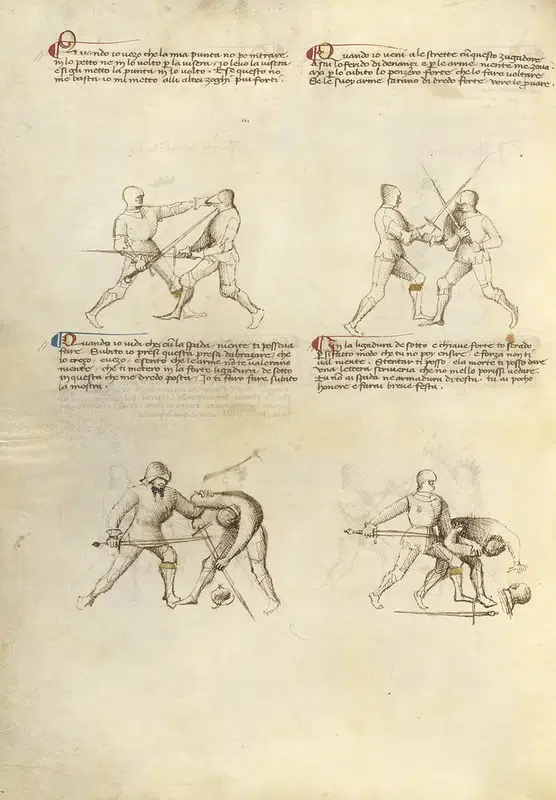 Quando io vezo che la mia punta no po intrare
in lo petto ne in lo volto p la visera, io levo la visera
e si gli metto la punta in lo volto. E se questo no
me basta io mi metto alli altri zoghi piu forti.
Quando io veni a le strette cu questo zugadore
e p le arme niente me zova
p lo cubito lo penzero forte che lo faro voltare
Se le suoy arme sarano di dredo forte voro lo pvare.
Quando io vidi che cu la spada niente ti posseva
fare. Subito io presi questa presa dabrazare, che
lo crezo, e vezo, e sento che le arme no te valerano
niente, che ti metero in la forte ligadura de sotto
in questa che me dredo posta. Io ti faro fare subito
la mostra.
In la ligadura de sotto e chiave forte to serado
p si fatto modo che tu no poy ensire, e forza non ti
val niente. Stentar ti posso, e la morte ti posso dare
una lettera scriveria che no mello porissi vedare.
Tu no ai spada ne armadura di testa, tu ai pocho
honore e farai breve festa.